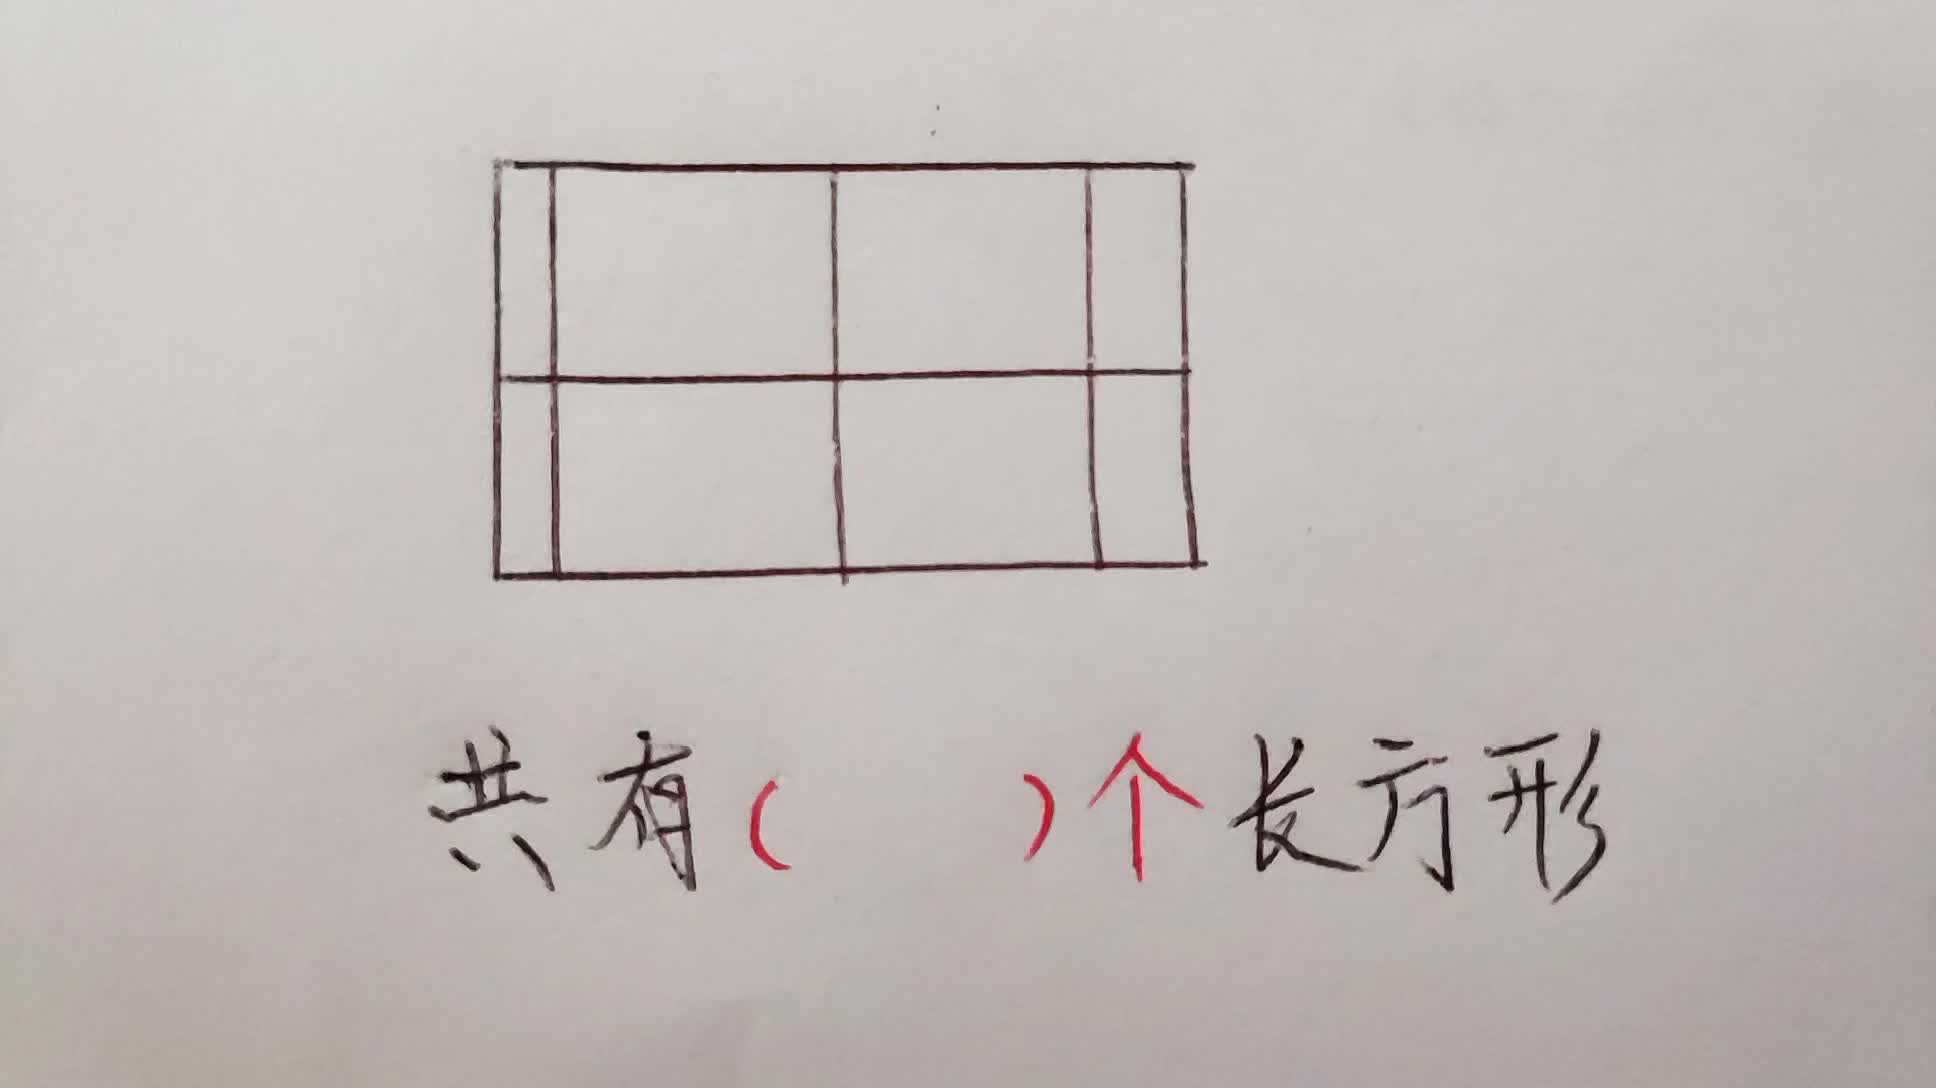 共有(     )个长方形